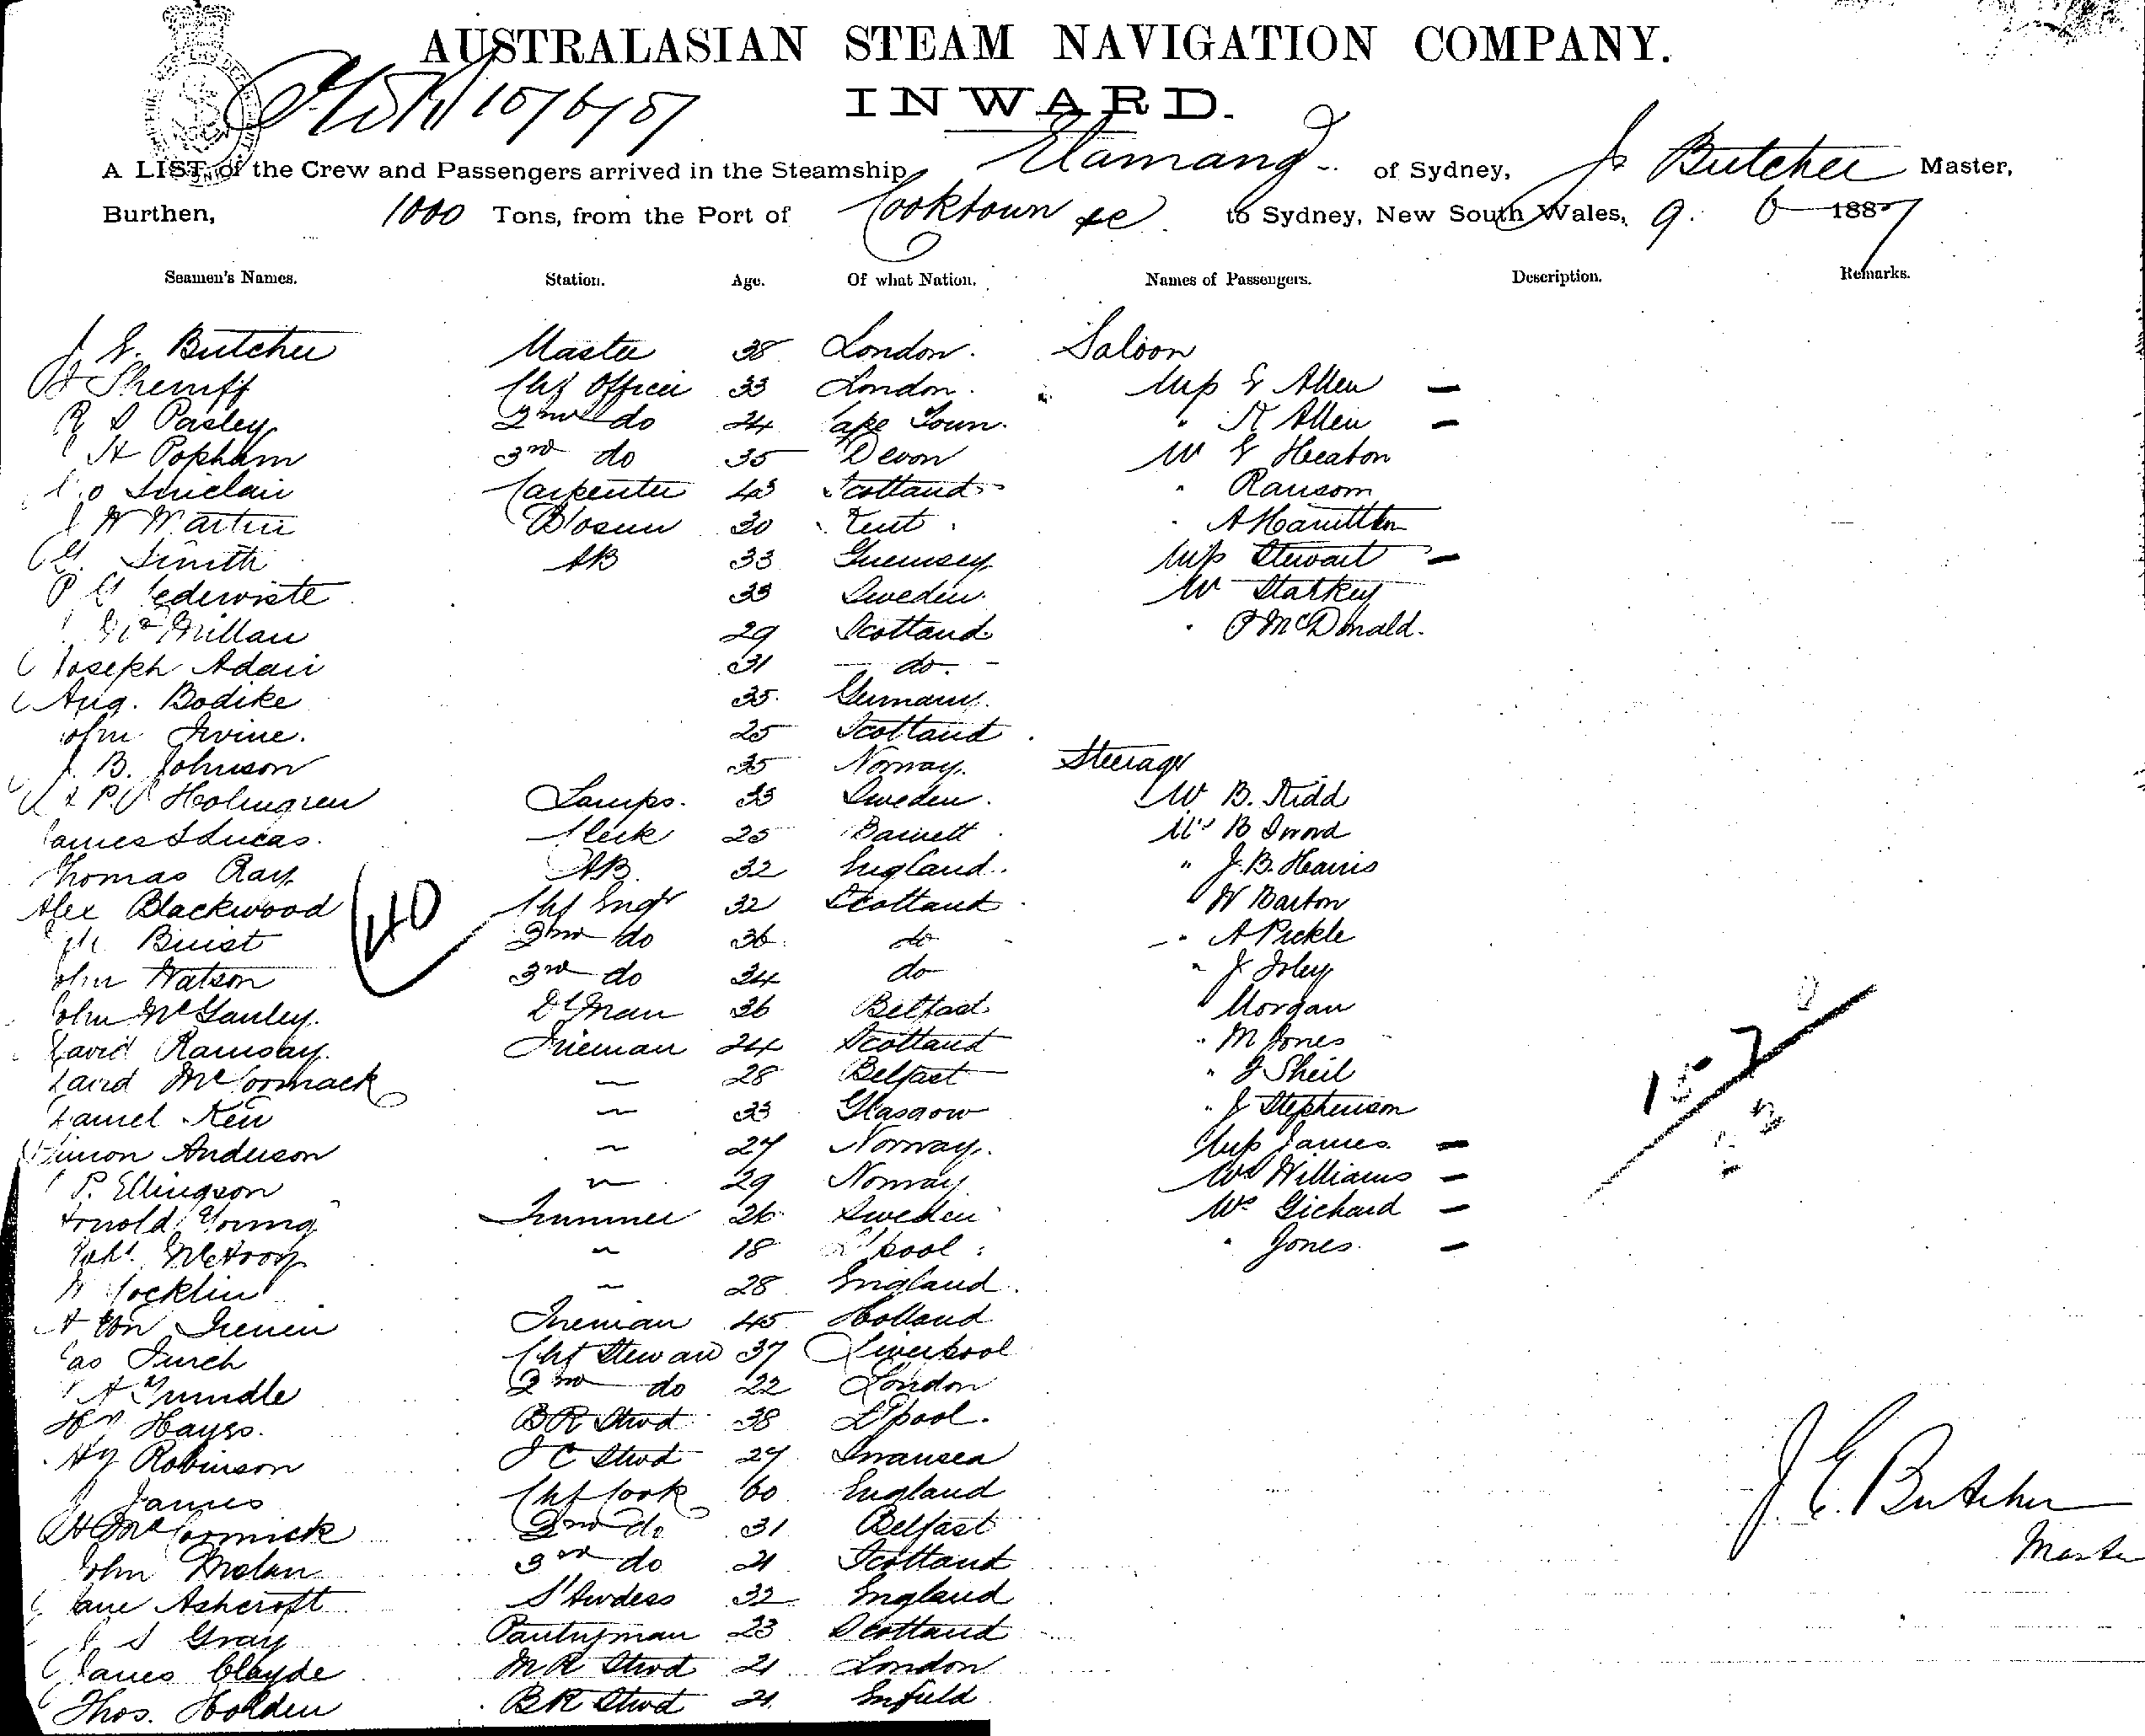 AUSTRALASIAN STEAM NAVIGATION COMPANY.
INWARD.
A LIST of the Crew and Passengers arrived in the Steamship Elamang of Sydney, J Butcher Master,
Burthen, 1000 Tons, from the Port of Cooktown &c to Sydney, New South Wales, 9. 6 1887
Seamen's Names. Station. Age. Of what Nation. Names of Passengers. Description. Remarks.
J E. Butcher Master 38 London. Saloon
Sherriff Chf Officer 33 London. Miss E Allen –
R S Pasley 2nd do 24 Cape Town. " K Allen –
H Popham 3rd do 35 Devon Mr E Heaton
Sinclair Carpenter 43 Scotland " Ransom
J W Martin Bosun 30 Kent " A Hamilton
G. Smith AB 33 Guernsey Miss Stewart –
P 33 Sweden. Mr Starkey
McMillan 29 Scotland " McDonald.
Joseph Adair 31 – do. –
Aug. Bodike 35. Germany.
John Irvine. 25 Scotland
J. B. Johnson 35 Norway. Steerage
Holmgren Lamps. 33 Sweden. Mr B. Kidd
James S Lucas. Clerk 25 Barnett Mr B Sword
Thomas Ray AB. 32 England. " J. B. Harris
Alex Blackwood Chf Engr 32 Scotland " W Barton
40
Buist 2nd do 36. do " A Pickle
John Watson 3rd do 24 do " J
John McGauley. Dk Man 26 Belfast " Morgan
David Ramsay. Fireman 24 Scotland " M Jones
David McCormack 〃 28 Belfast " J Sheil
Daniel Keir 〃 33 Glasgow " J Stephenson
Simon Anderson 〃 27 Norway. Miss James. –
P. Ellingson 〃 29 Norway Mrs Williams –
Arnold Young Trimmer 26 Sweden Mrs Gichard –
Robt. McHoop 〃 18 L'pool " Jones. –
Cocklin 〃 28 England.
A Von Fireman 45 Holland
Jas Chf Steward 37 Liverpool
A Trundle 2nd do 22 London
Hy Hayes. BR Stwd 38 L'pool.
Hy Robinson S C Stwd 27 Swansea
J James Chf Cook 60 England
H McCormick 2nd do 31 Belfast
John 3rd do 21 Scotland
Jane Ashcroft S'twdess 32 England
J S Gray Pantryman 23 Scotland
James Clayde MR Stwd 21 London
Thos. Holden BR Stwd 21. Enfield
J. E. Butcher
Master